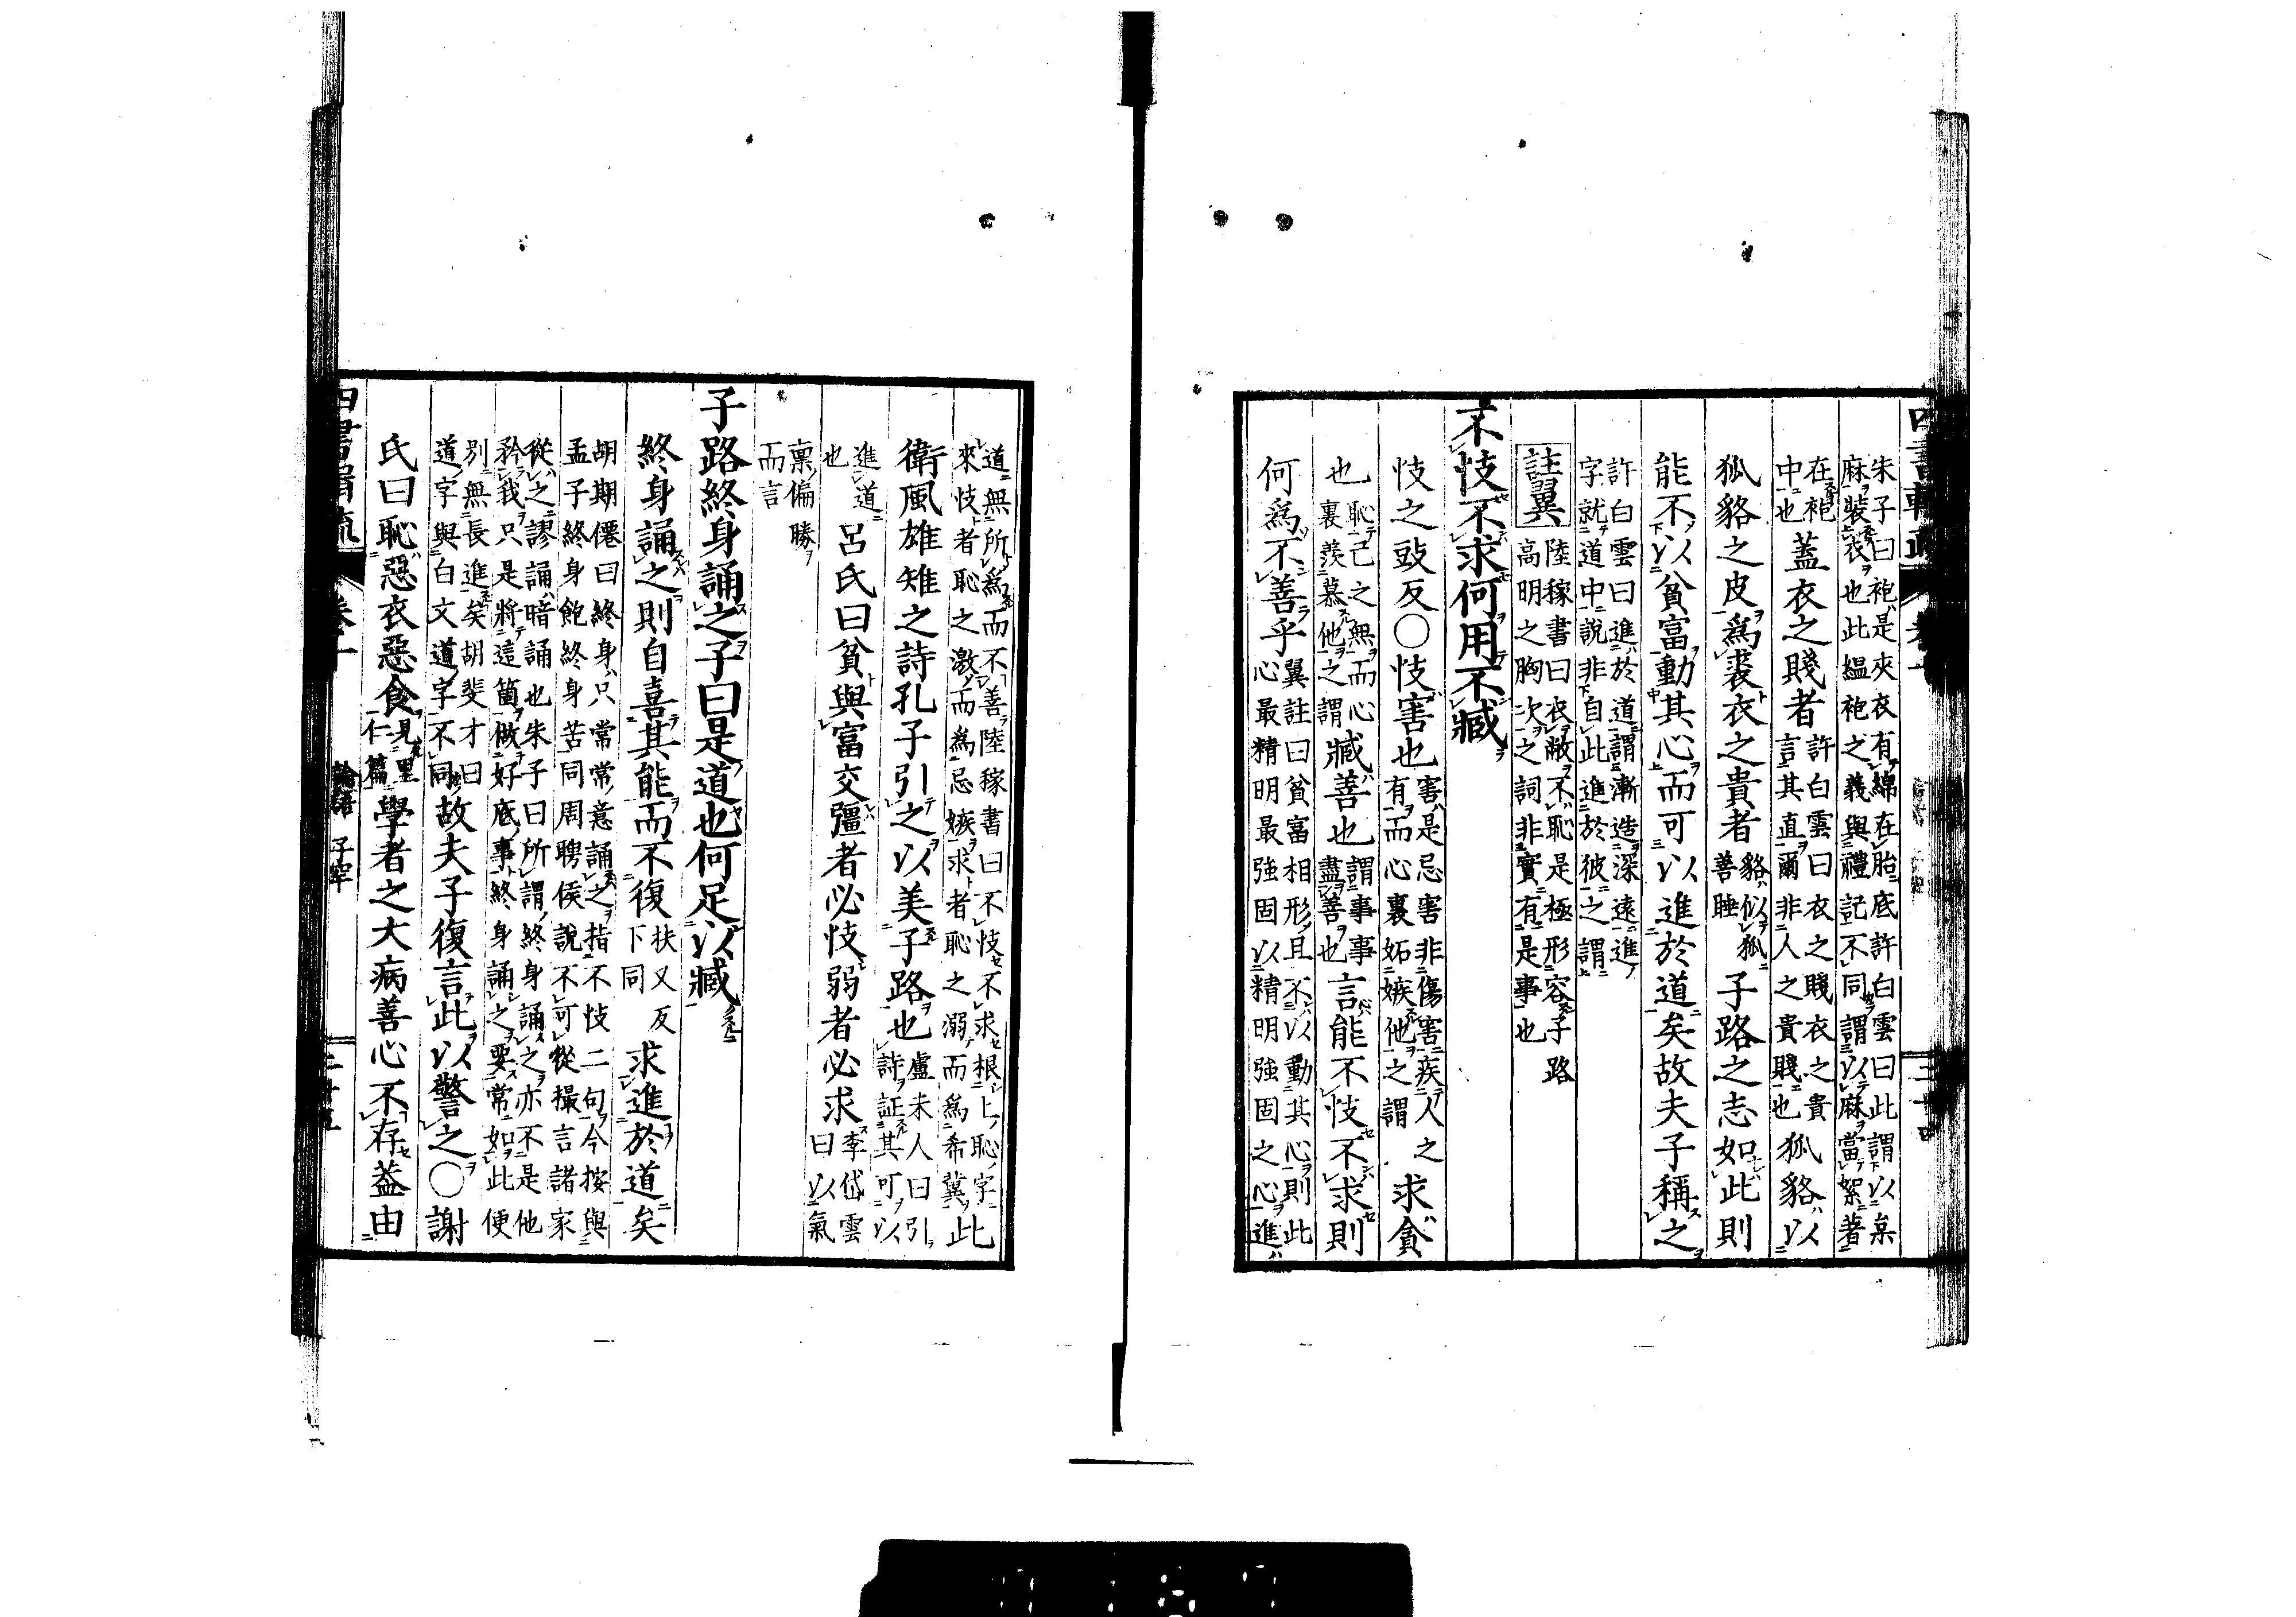 朱子曰袍是夾衣有綿在胎底許白雲曰此謂以枲
麻裝衣也此縕袍之義與禮記不同謂以麻當絮著
在袍中也蓋衣之賤者許白雲曰衣之賤衣之貴言其直爾非人之貴賤也狐貉以
狐貉之皮爲裘衣之貴者貉似狐善睡子路之志如此則
能不以貧富動其心而可以進於道矣故夫子稱之
許白雲曰進於道謂漸造深遠進
字就道中說非自此進於彼之謂
註翼陸稼書曰衣敝不恥是極形容子路
高明之胸次之詞非實有是事也
不忮不求何用不臧
忮之豉反○忮害也害是忌害非傷害疾人之有而心裏妬嫉他之謂求貪
也恥己之無而心裏羨慕他之謂臧善也謂事事盡善也言能不忮不求則
何爲不善乎翼註曰貧富相形且不以動其心則此心最精明最強固以精明強固之心進
道無所爲而不善陸稼書曰不忮不求根上恥字
來忮者恥之激而爲忌嫉求者恥之溺而爲希冀此
衛風雄雉之詩孔子引之以美子路也盧未人曰引詩証其可以
進道也呂氏曰貧與富交彊者必忮弱者必求李岱雲曰以氣
禀偏勝
而言
子路終身誦之子曰是道也何足以臧
終身誦之則自喜其能而不復扶又反下同求進於道矣
胡期僊曰終身只常常意誦之指不忮二句今按與
孟子終身飽終身苦同周聘侯說不可從撮言諸家
從之謬誦暗誦也朱子曰所謂終身誦之亦不是他
矜我只是將這箇做好底事終身誦之要常如此便
別無長進矣胡斐才曰
道字與白文道字不同故夫子復言此以警之○謝
氏曰恥惡衣惡食見里仁篇學者之大病善心不存蓋由
卷十
論語 子罕
二十五